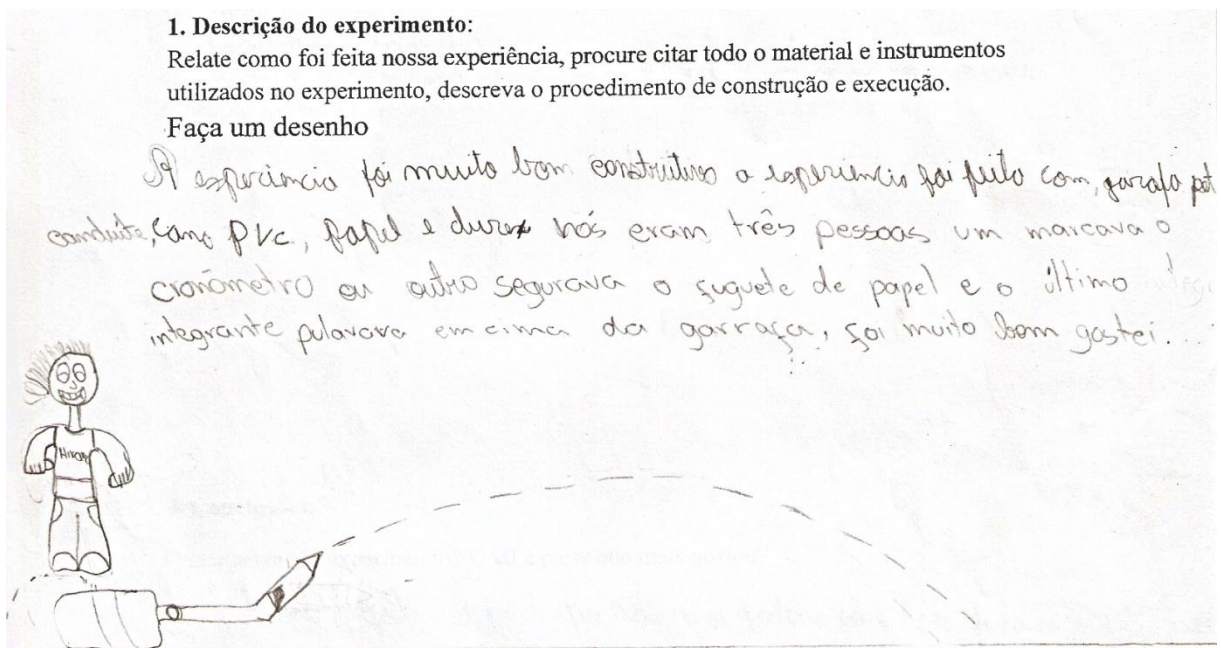 1. Descrição do experimento:
Relate como foi feita nossa experiência, procure citar todo o material e instrumentos
utilizados no experimento, descreva o procedimento de construção e execução.
Faça um desenho
A experiencia foi muito bom construtivo a experiencia foi feito com, garafa pet
conduite, cano PVC, papel e durex nós eram três pessoas um marcava o
cronômetro ou outro segurava o fuguete de papel e o último
integrante pulavava em cima da garrafa, foi muito bom gostei.